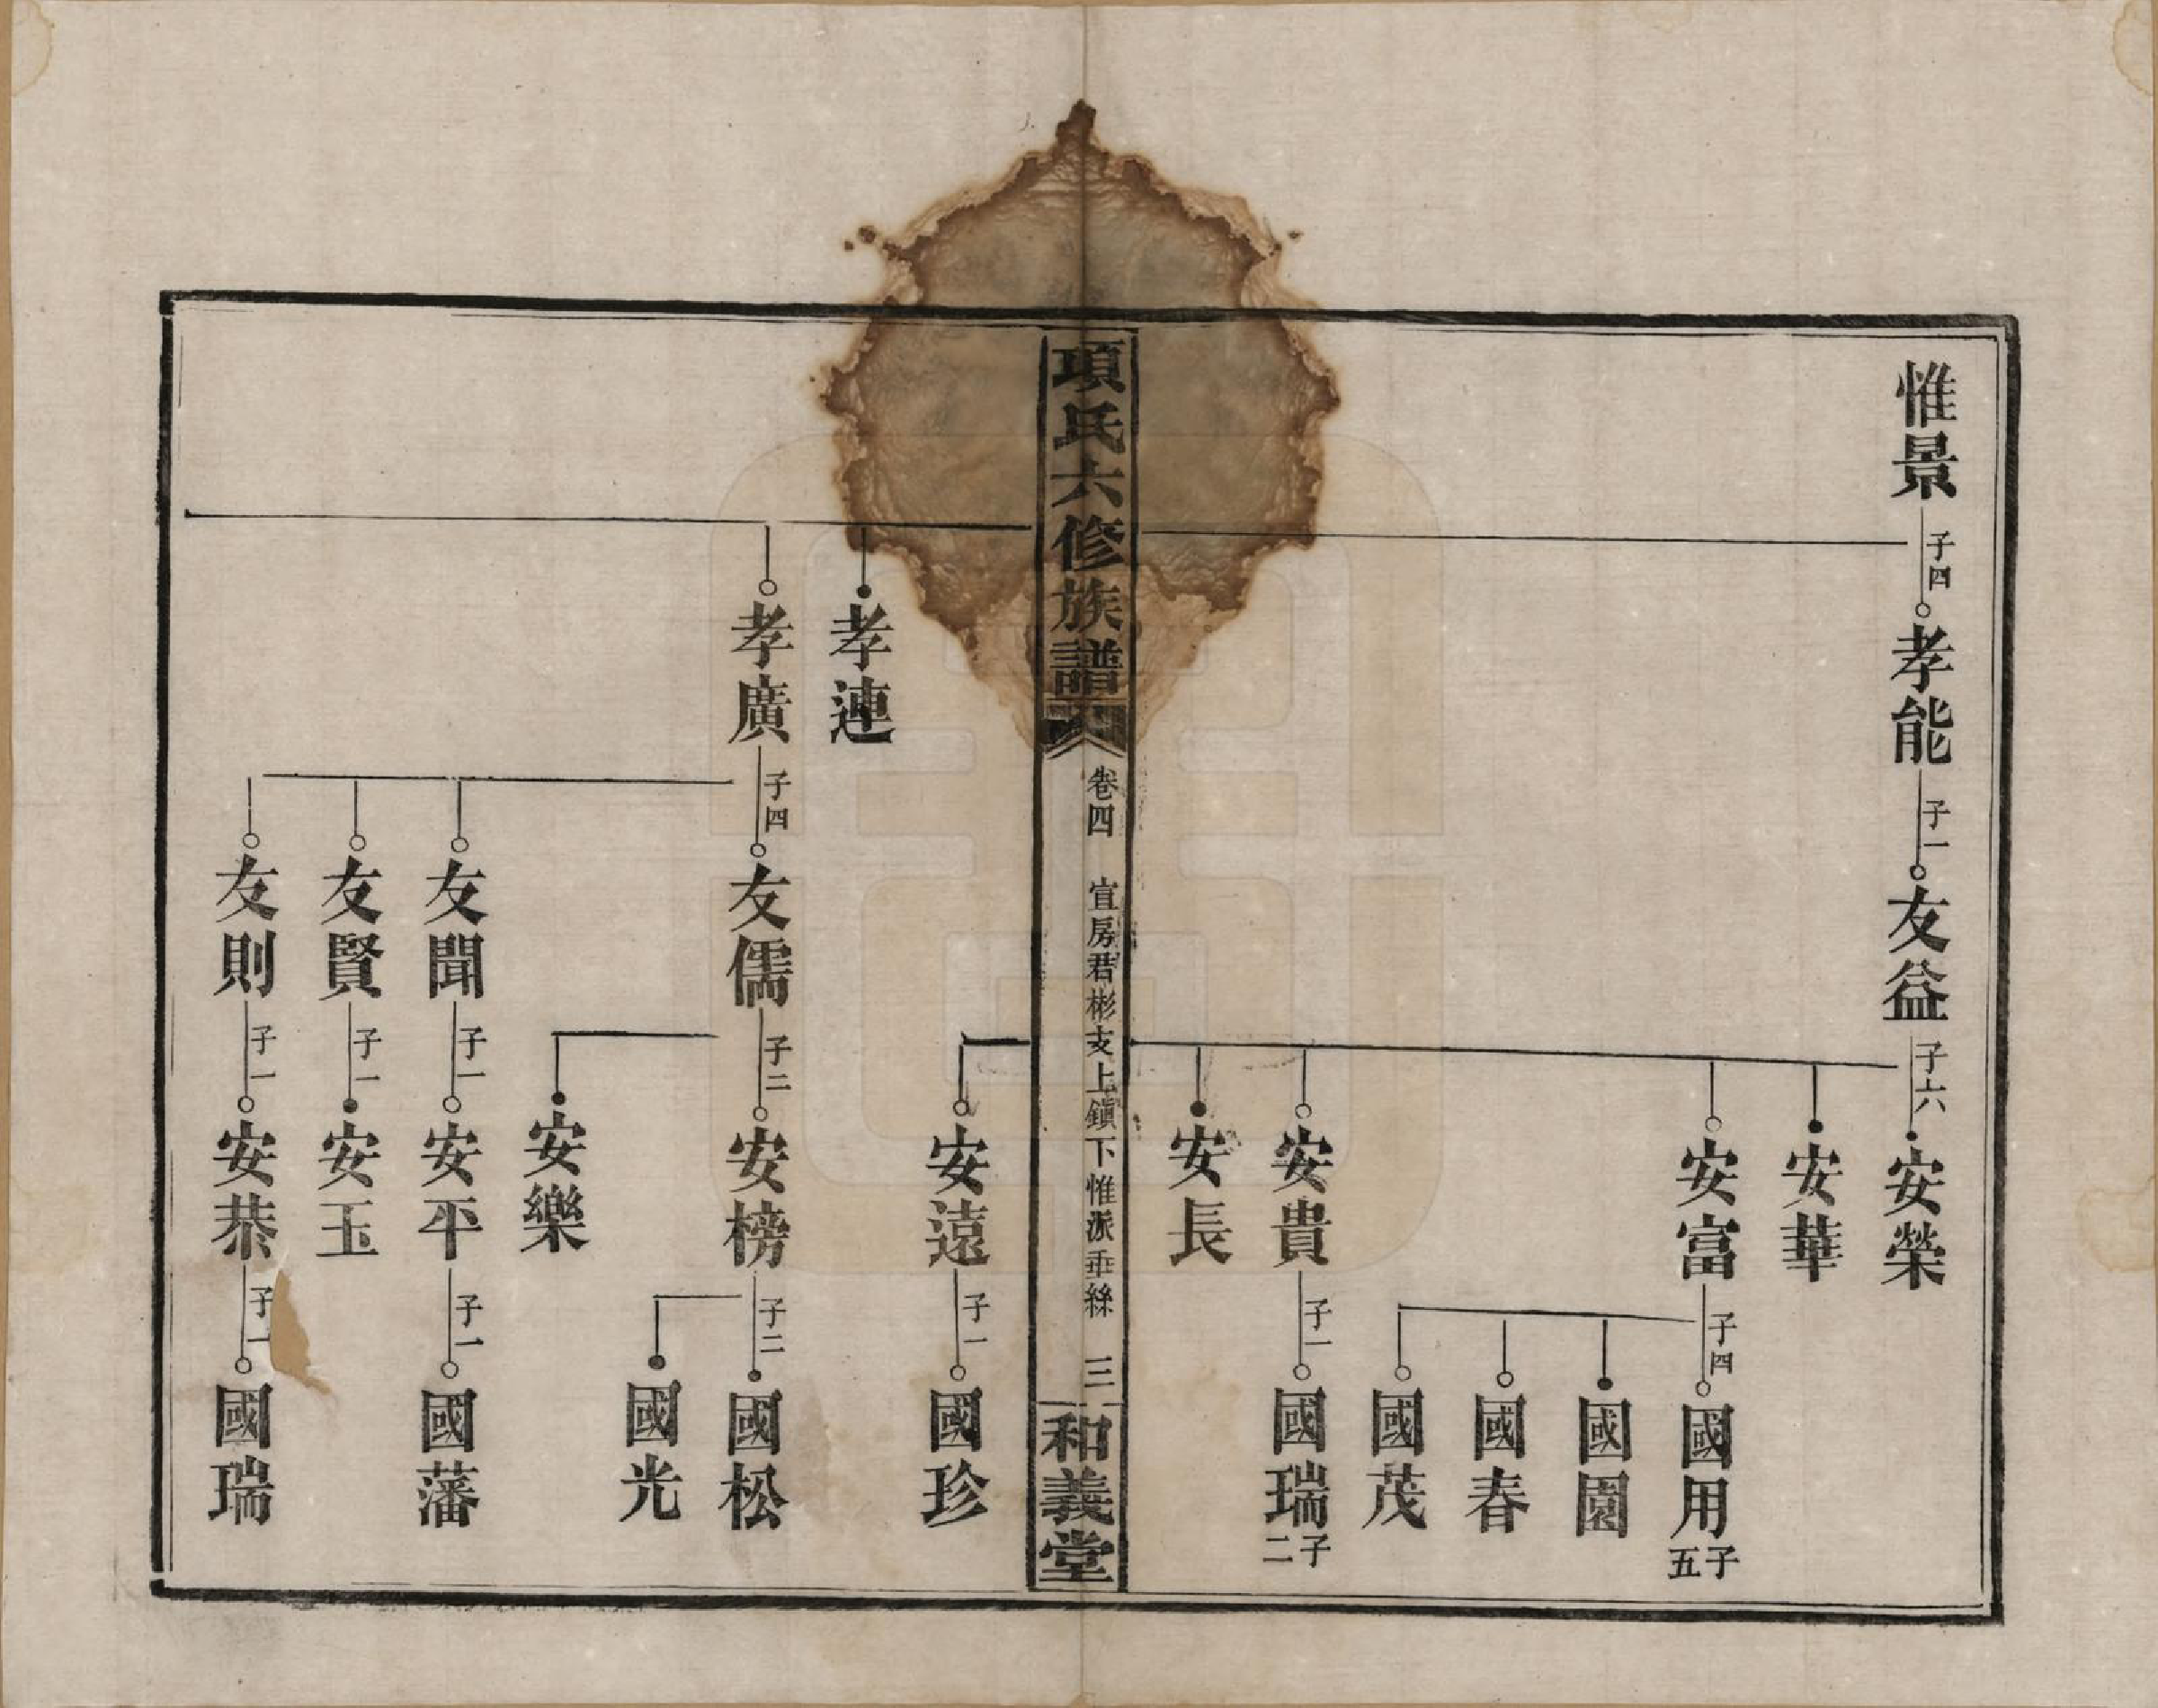 惟景 子四 孝能 子一 友益 子六 安榮
安華
安富 子四 國用 子五
國園
國春
國茂
安貴 子一 國瑞 子二
安長
項氏六修族譜 卷四 宣房君彬支上鎮下惟派垂絲 三 和義堂
安遠 子一 國珍
孝連
孝廣 子四 友儒 子二 安榜 子二 國松
國光
安樂
友聞 子一 安平 子一 國藩
友賢 子一 安玉
友則 子一 安恭 子一 國瑞